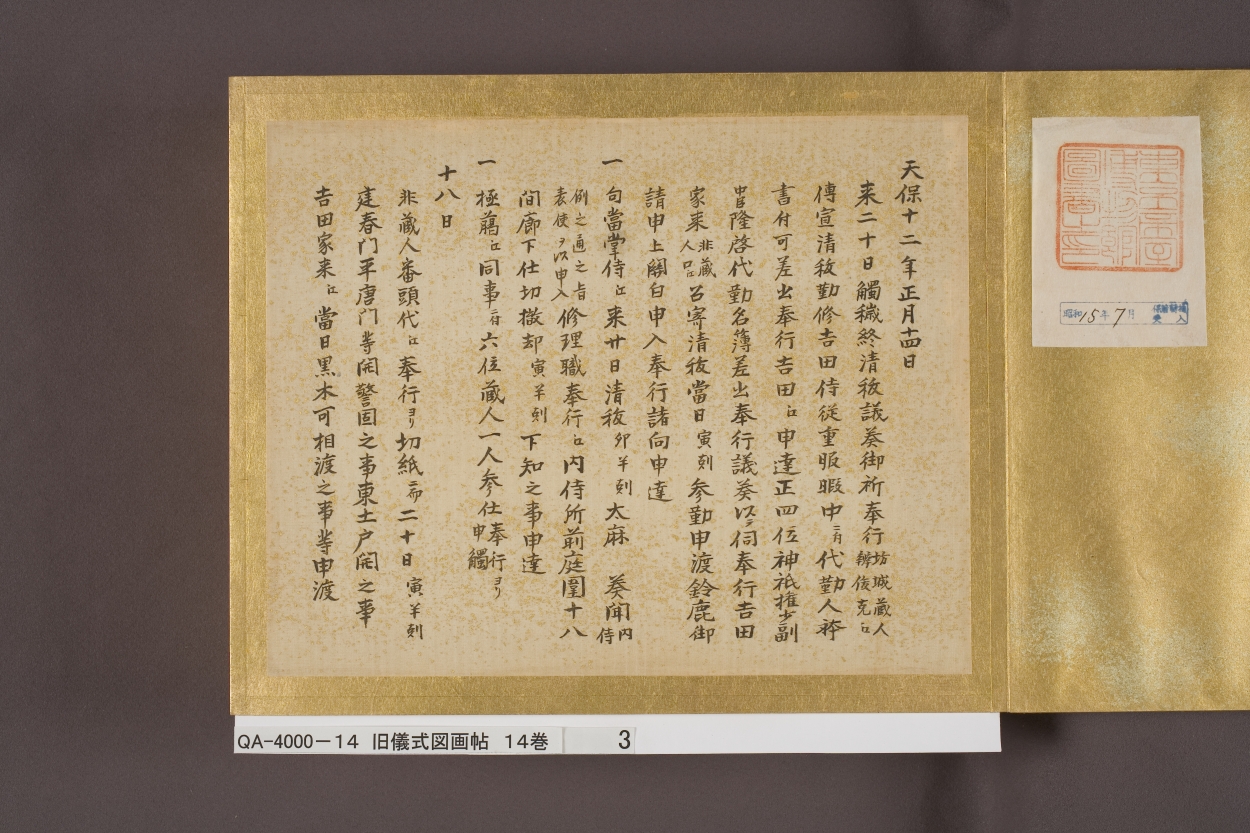 天保十二年正月十四日
来二十日觸穢終清祓議奏御祈奉行坊城蔵人辨俊克江
傳宣清祓勤修吉田侍従重服暇中ニ付代勤人祢
書付可差出奉行吉田江申達正四位神祇権少副
中臣隆啓代勤名簿差出奉行議奏以テ伺奉行吉田
家来非蔵人口江召寄清祓當日寅刻参勤申渡鈴鹿御
請申上關白申入奉行諸向申達
一句當掌侍江来廿日清祓卯半刻大麻 奏聞内侍
例之通之旨表使ヲ以申入修理職奉行江内侍所前庭圍十八
間廊下仕切撤却寅半刻下知之事申達
一極﨟江同事ニ付六位蔵人一人参仕奉行ヨリ申觸
十八日
非蔵人番頭代江奉行ヨリ切紙ニ而二十日寅半刻
建春门平唐门等開警固之事東土戸開之事
吉田家来江當日黒木可相渡之事等申渡
昭和15年7月
QA-4000-14 旧儀式図画帖 14巻 3